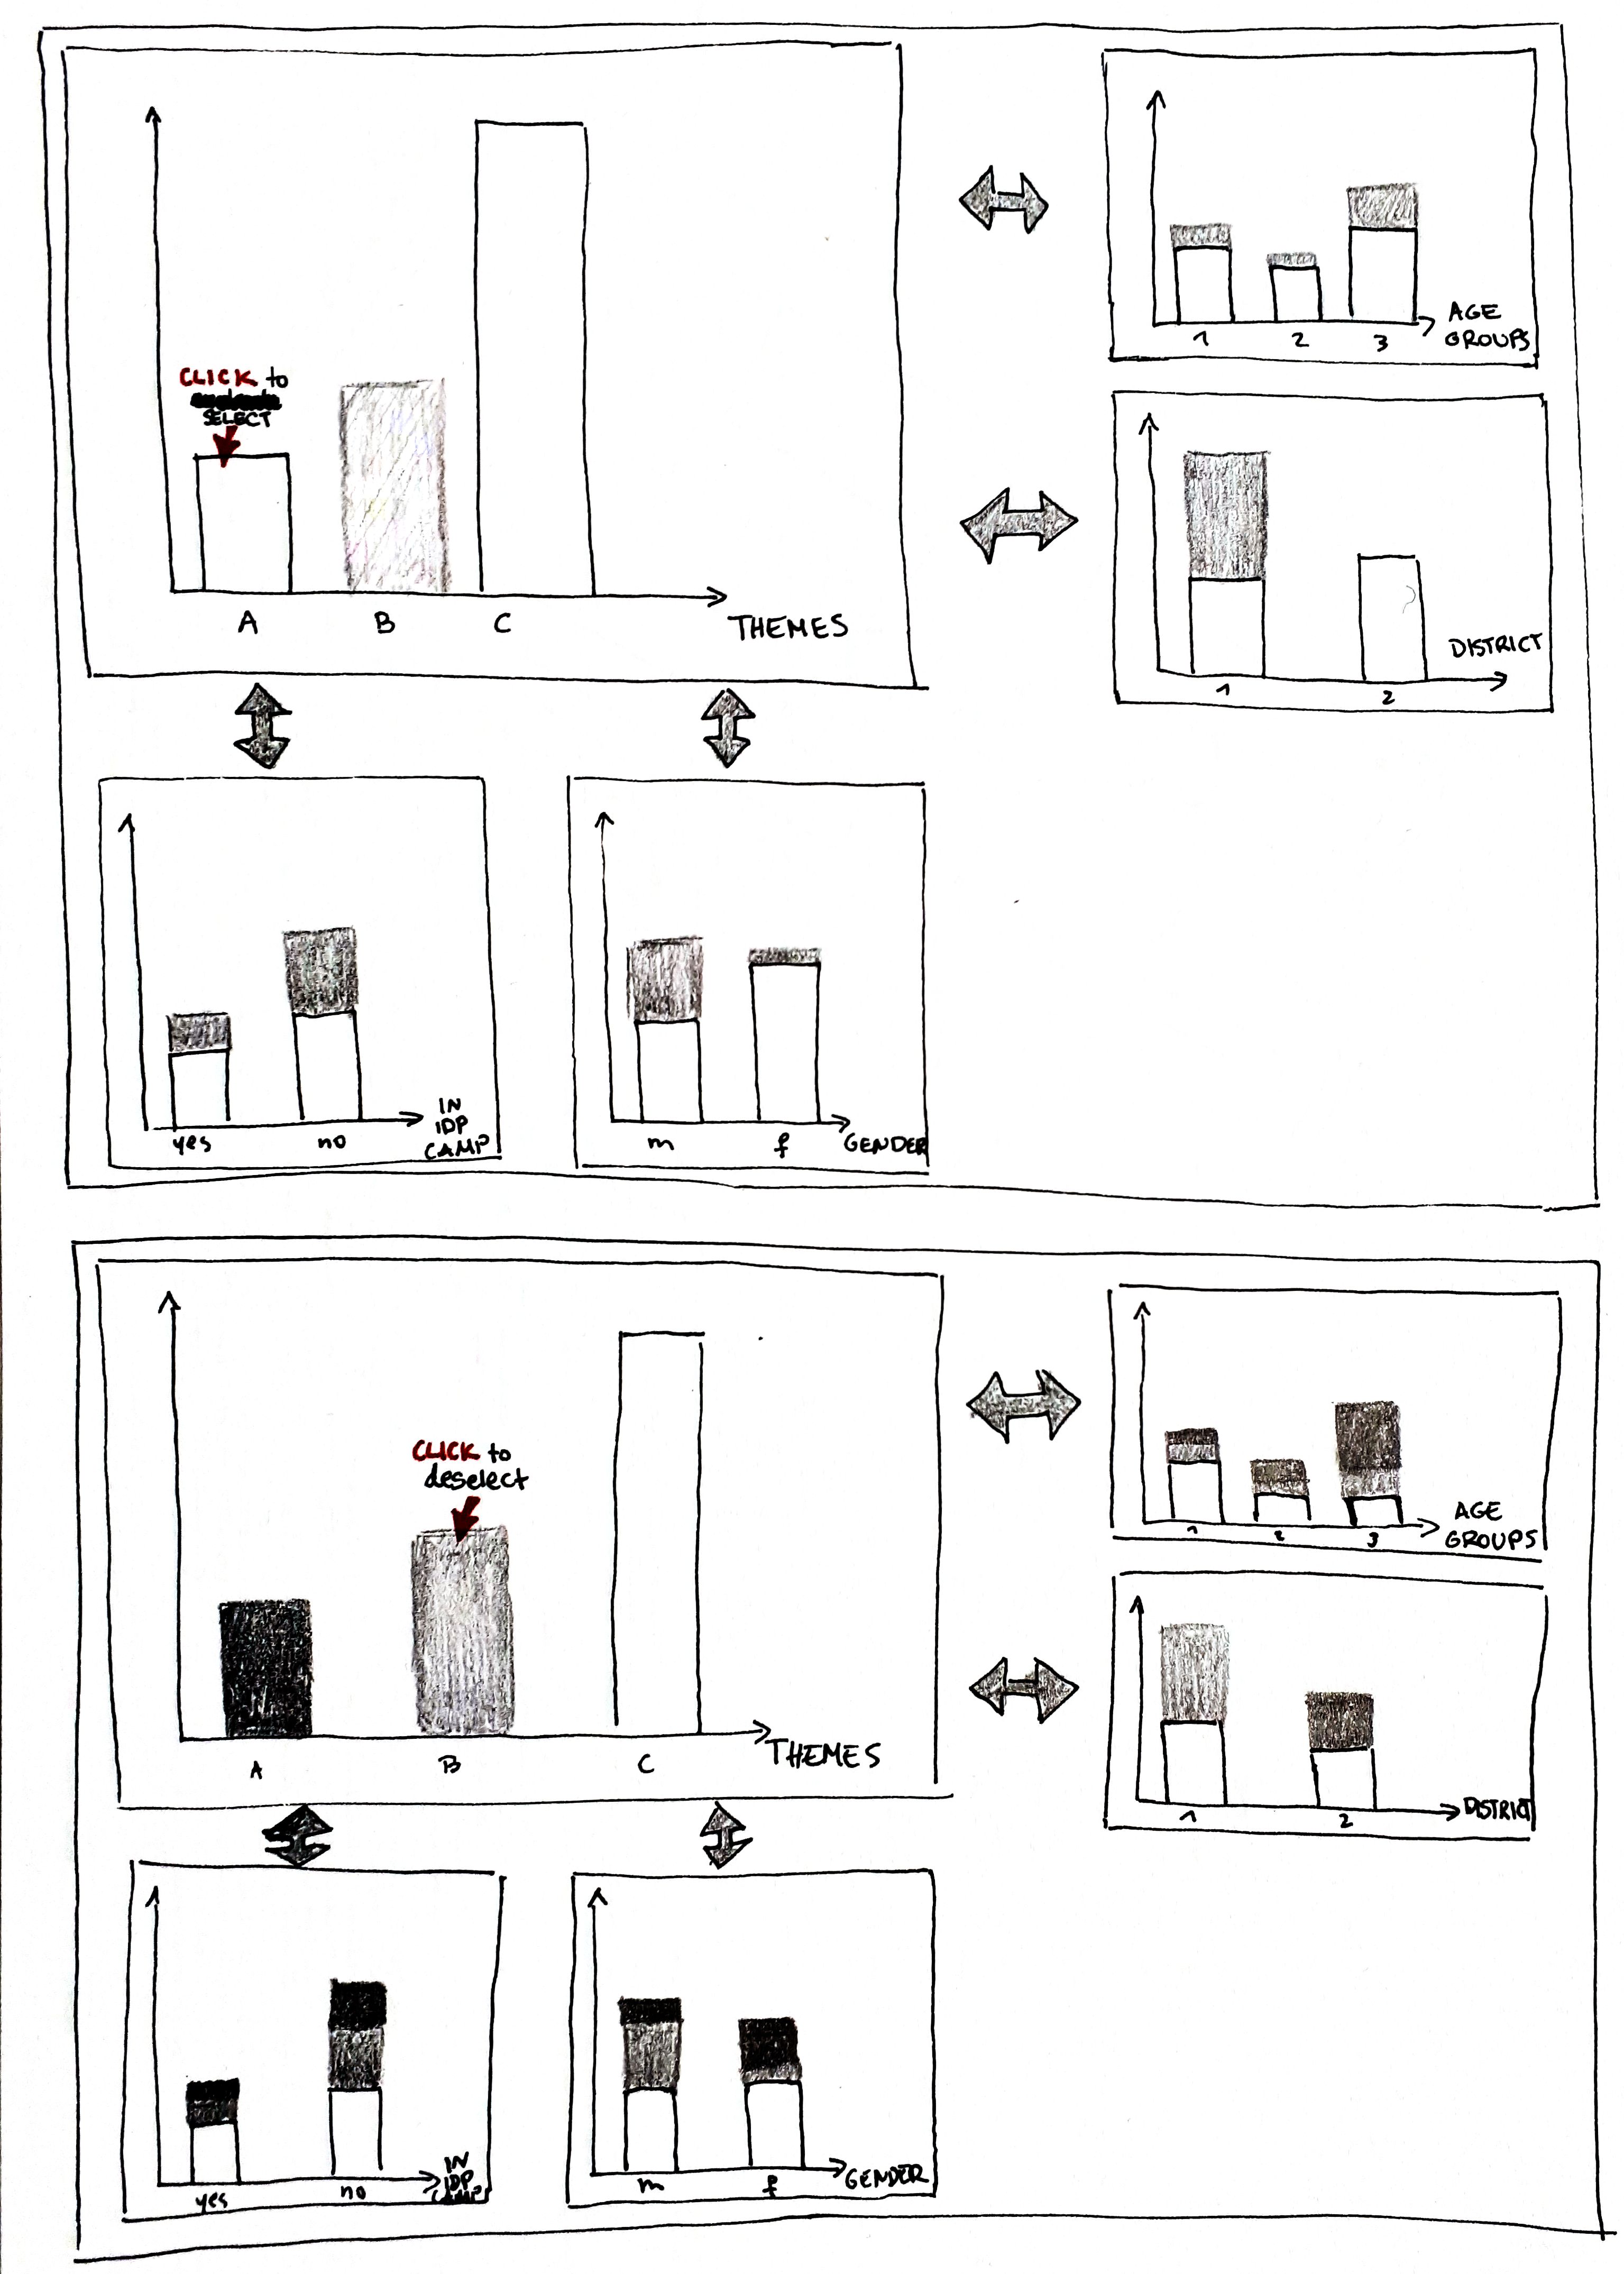 CLICK to
SELECT
A B C
THEMES
1 2 3
AGE
GROUPS
1 2
DISTRICT
yes no
IN
IDP
CAMP
m f
GENDER
CLICK to
deselect
A B C
THEMES
1 2 3
AGE
GROUPS
1 2
DISTRICT
yes no
IN
IDP
CAMP
m f
GENDER